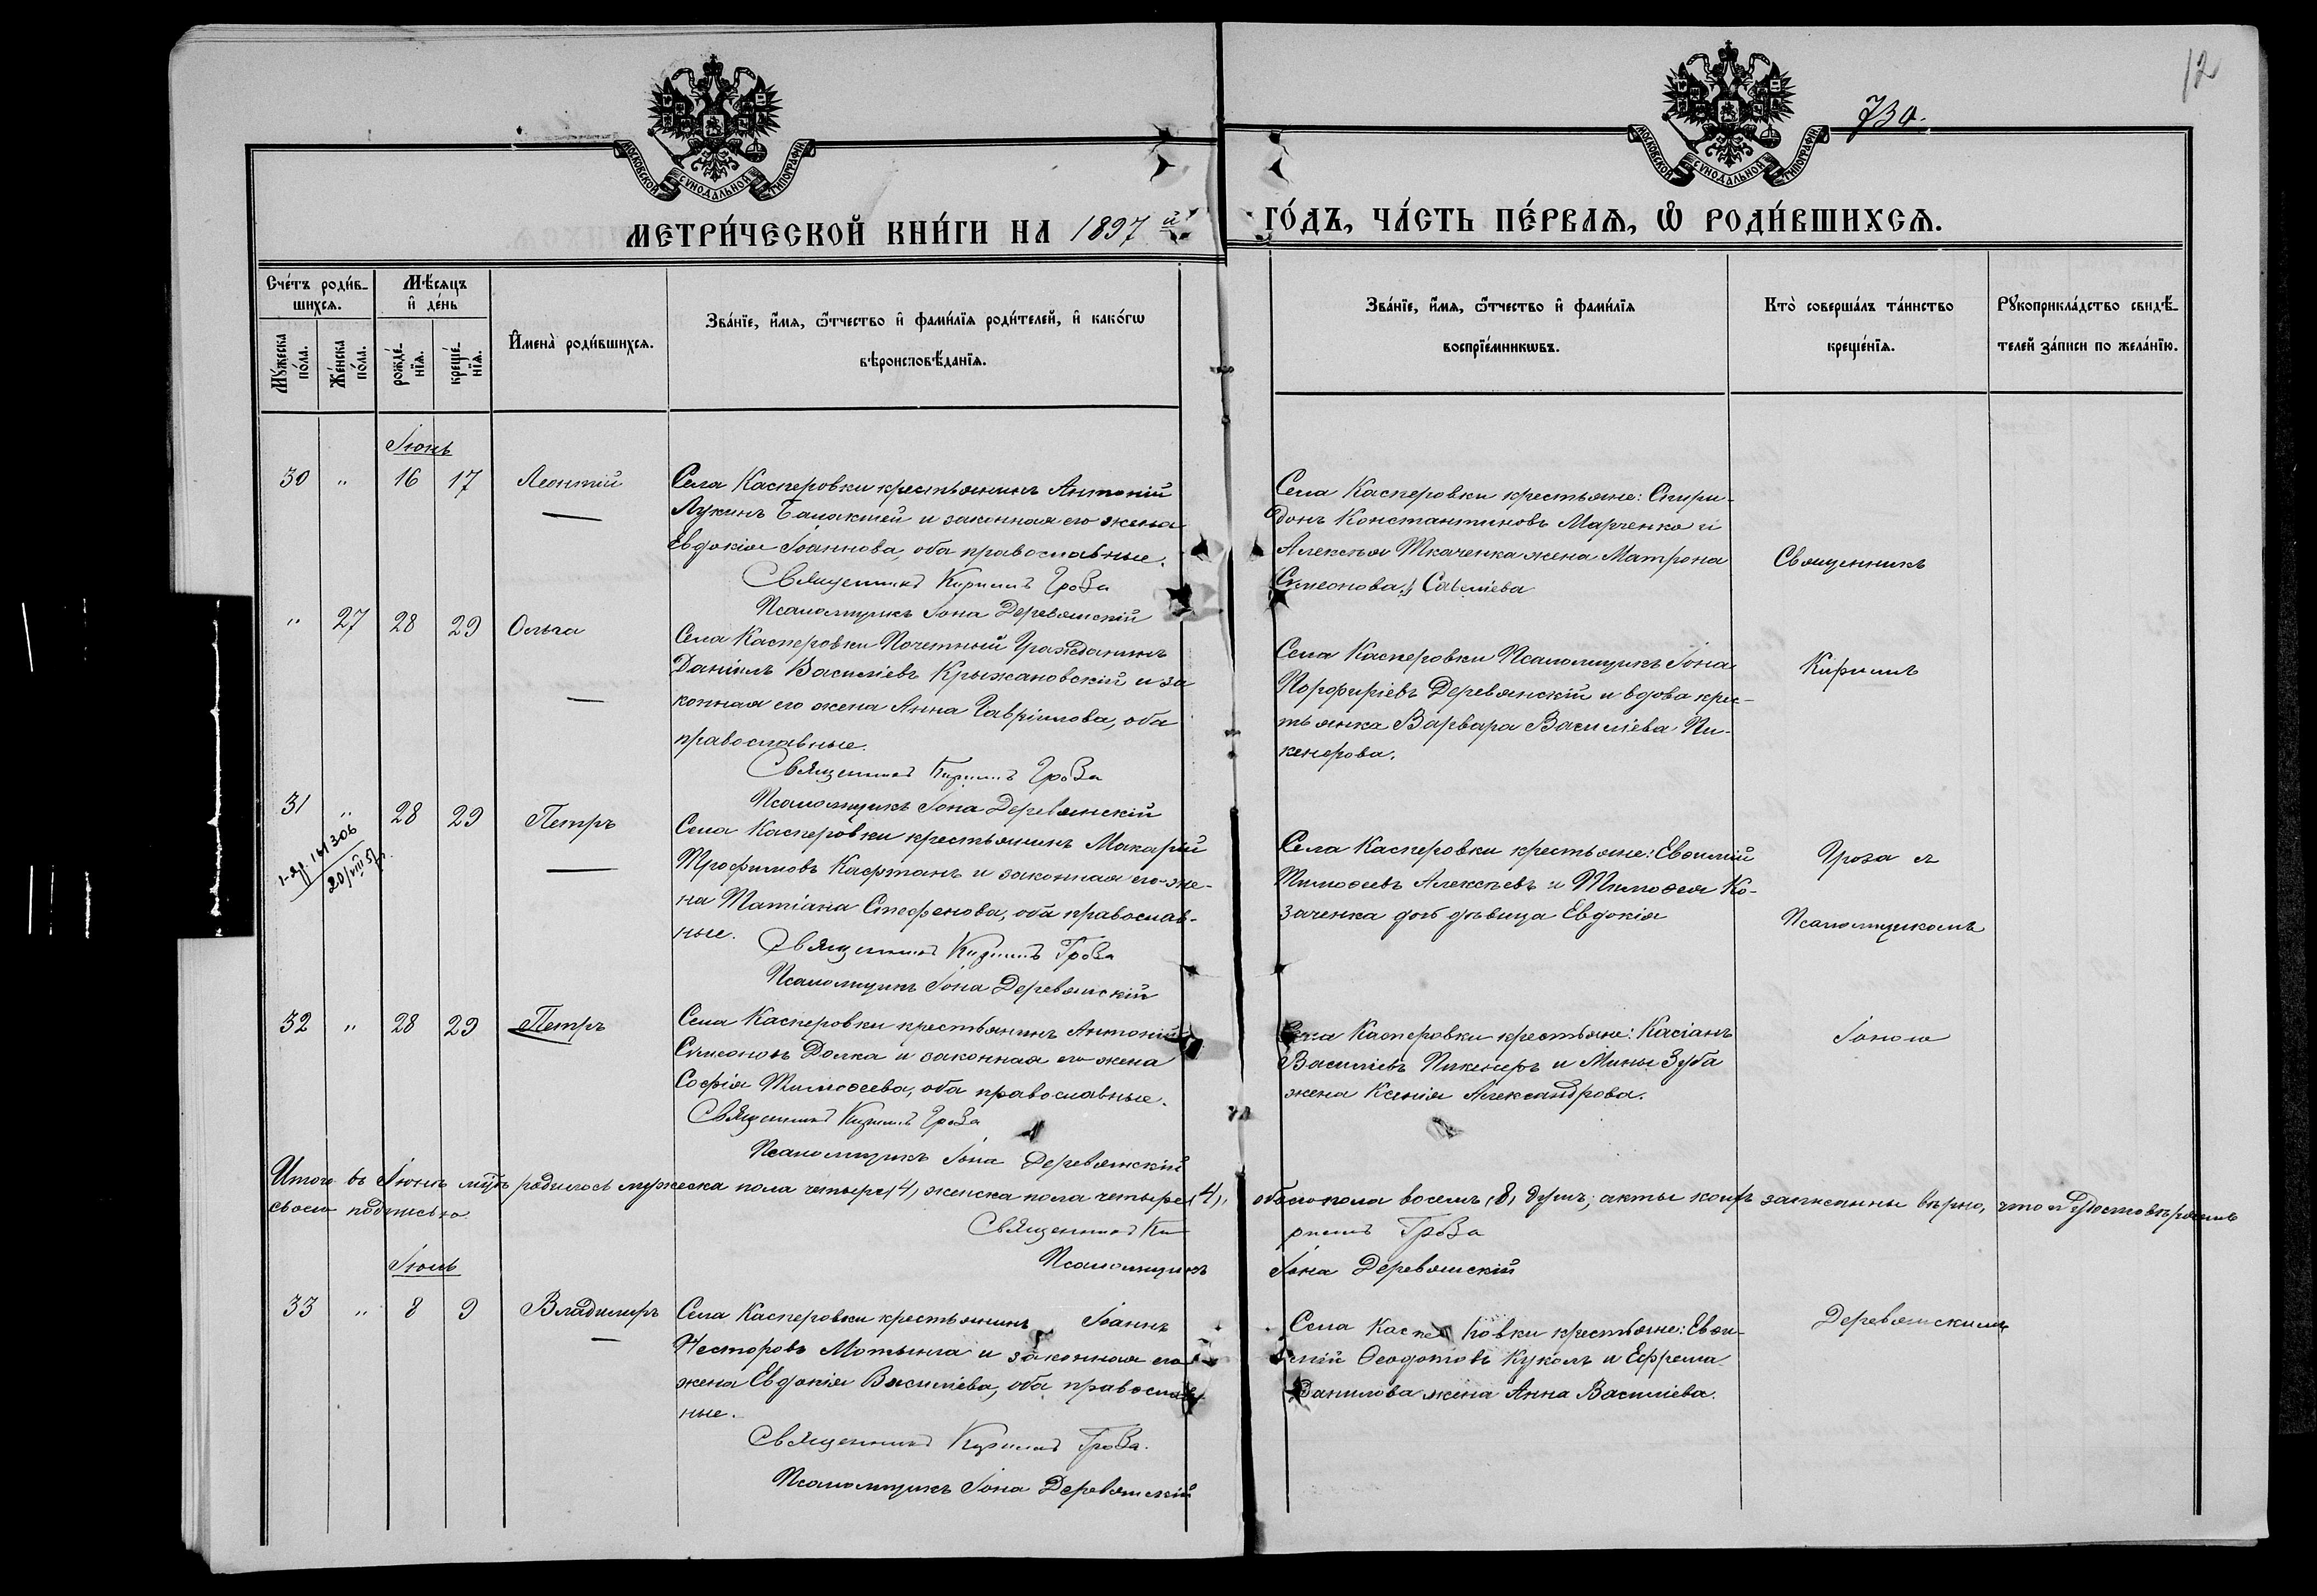 12
730.
МОСКОВСКОЙ СѴНОДАЛЬНОЙ ТИПОГРАФІИ
МОСКОВСКОЙ СѴНОДАЛЬНОЙ ТИПОГРАФІИ
МЕТРИ́ЧЕСКОЙ КНИ́ГИ НА 1897й
ГО́ДЪ, ЧА́СТЬ ПЕ́РВАѦ, Ѽ РОДИ́ВШИХСѦ.
Сче́тъ роди́в-
шихсѧ.
Мꙋ́жеска по́ла.
Же́нска по́ла.
Мѣ́сѧцъ
и҆ де́нь
рожде́-нїѧ.
креще́-нїѧ.
И҆мена̀ роди́вшихсѧ.
Зва́нїе, и҆́мѧ, ѻ҆́тчество и҆ фами́лїѧ роди́телей, и҆ како́гѡ
вѣроисповѣ́данїѧ.
Зва́нїе, и҆́мѧ, ѻ҆́тчество и҆ фами́лїѧ
воспрїе́мникѡвъ.
Кто̀ соверша́лъ та́инство
креще́нїѧ.
Рꙋкоприкла́дство свидѣ́-
телей за́писи по жела́нїю.
Іюнь
30 " 16 17 Леонтій
Села Касперовки крестьянинъ Антоній
Лукинъ Балакшей и законная его жена
Евдокія Іоаннова, оба православные.
Священникъ Кириллъ Гроза
Псаломщикъ Іона Деревянскій
Села Касперовки крестьяне: Спири-
донъ Константиновъ Марченко и
Алексѣя Ткаченка жена Матрона
Симеонова) Савиліева
" 27 28 29 Ольга
Села Касперовки Почетный Гражданинъ
Даніилъ Василіевъ Крыжановскій и за
конная его жена Анна Гавріилова, оба
православные.
Священникъ Кириллъ Гроза
Псаломщикъ Іона Деревянскій
Села Касперовки Псаломщикъ Іона
Порфиріевъ Деревянскій и вдова крес-
тьянка Варвара Василіева Пи-
кенерова.
31 " 28 29 Петръ
20/VIII 57
Села Касперовки крестьянинъ Макарій
Трофимовъ Кафтанъ и законная его же-
на Татіана Стефенова, оба православ-
ные.
Священникъ Кириллъ Гроза
Псаломщикъ Іона Деревянскій
Села Касперовки крестьяне: Евѳимій
Тимоѳеевъ Алексѣевъ и Тимоѳея Ко-
заченка дочь дѣвица Евдокія
32 " 28 29 Петръ
Села Касперовки крестьянинъ Антоній
Симеоновъ Долка и законная его жена
Софія Тимоѳеева, оба православные.
Священникъ Кириллъ Гроза
Псаломщикъ Іона Деревянскій
Села Касперовки крестьяне: Касіанъ
Василіевъ Пикенеръ и Мины Зуба
жена Ксенія Александрова.
Итого въ Іюнѣ мцѣ родилось мужеска пола четыре (4), женска пола четыре (4), обоего пола восемь (8) душъ; акты коихъ записанны вѣрно, что и удостовѣряемъ
своею подписью.
Священникъ Кириллъ Гроза
Псаломщикъ Іона Деревянскій
Іюль
33 " 8 9 Владимиръ
Села Касперовки крестьянинъ Іоаннъ
Несторовъ Мотынга и законная его
жена Евдокія Василіева, оба православ-
ные.
Священникъ Кириллъ Гроза.
Псаломщикъ Іона Деревянскій
Села Касперовки крестьяне: Евѳи-
мій Ѳеодотовъ Куколъ и Ефрема
Данилова жена Анна Василіева.
Священникъ
Кириллъ
Гроза съ
Псаломщикомъ
Іоною
Деревянскимъ